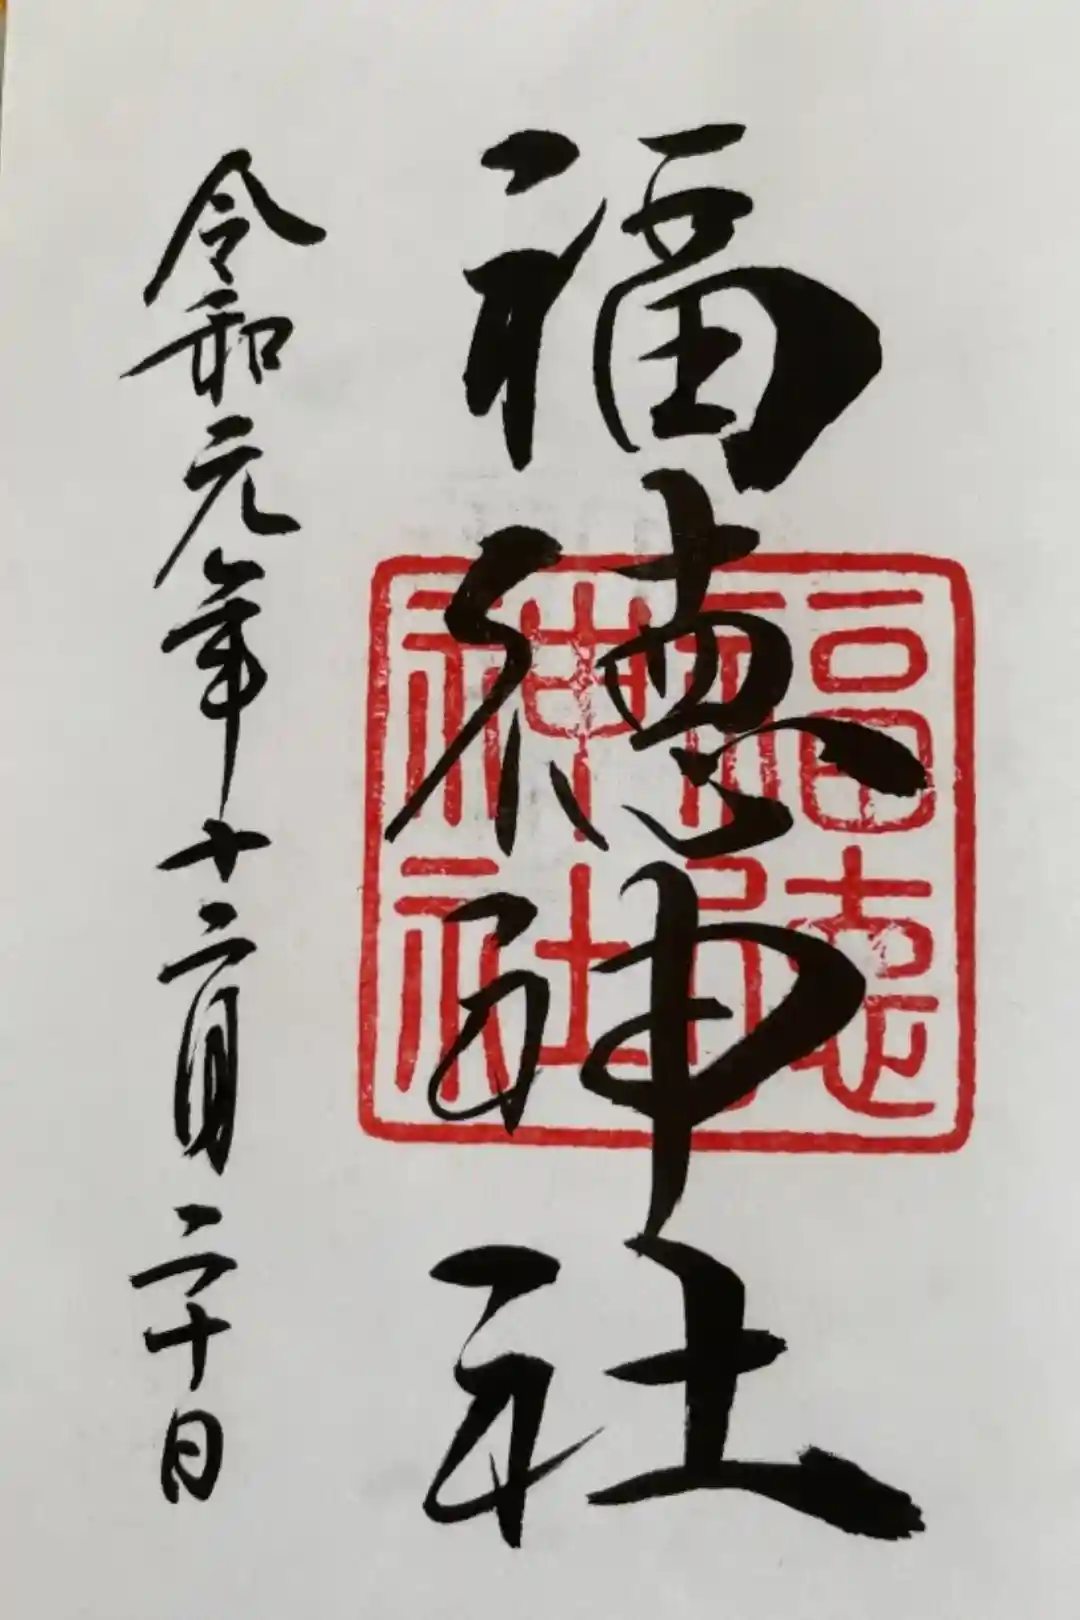 福徳神社
令和元年十二月二十日
福徳
稲荷
神社